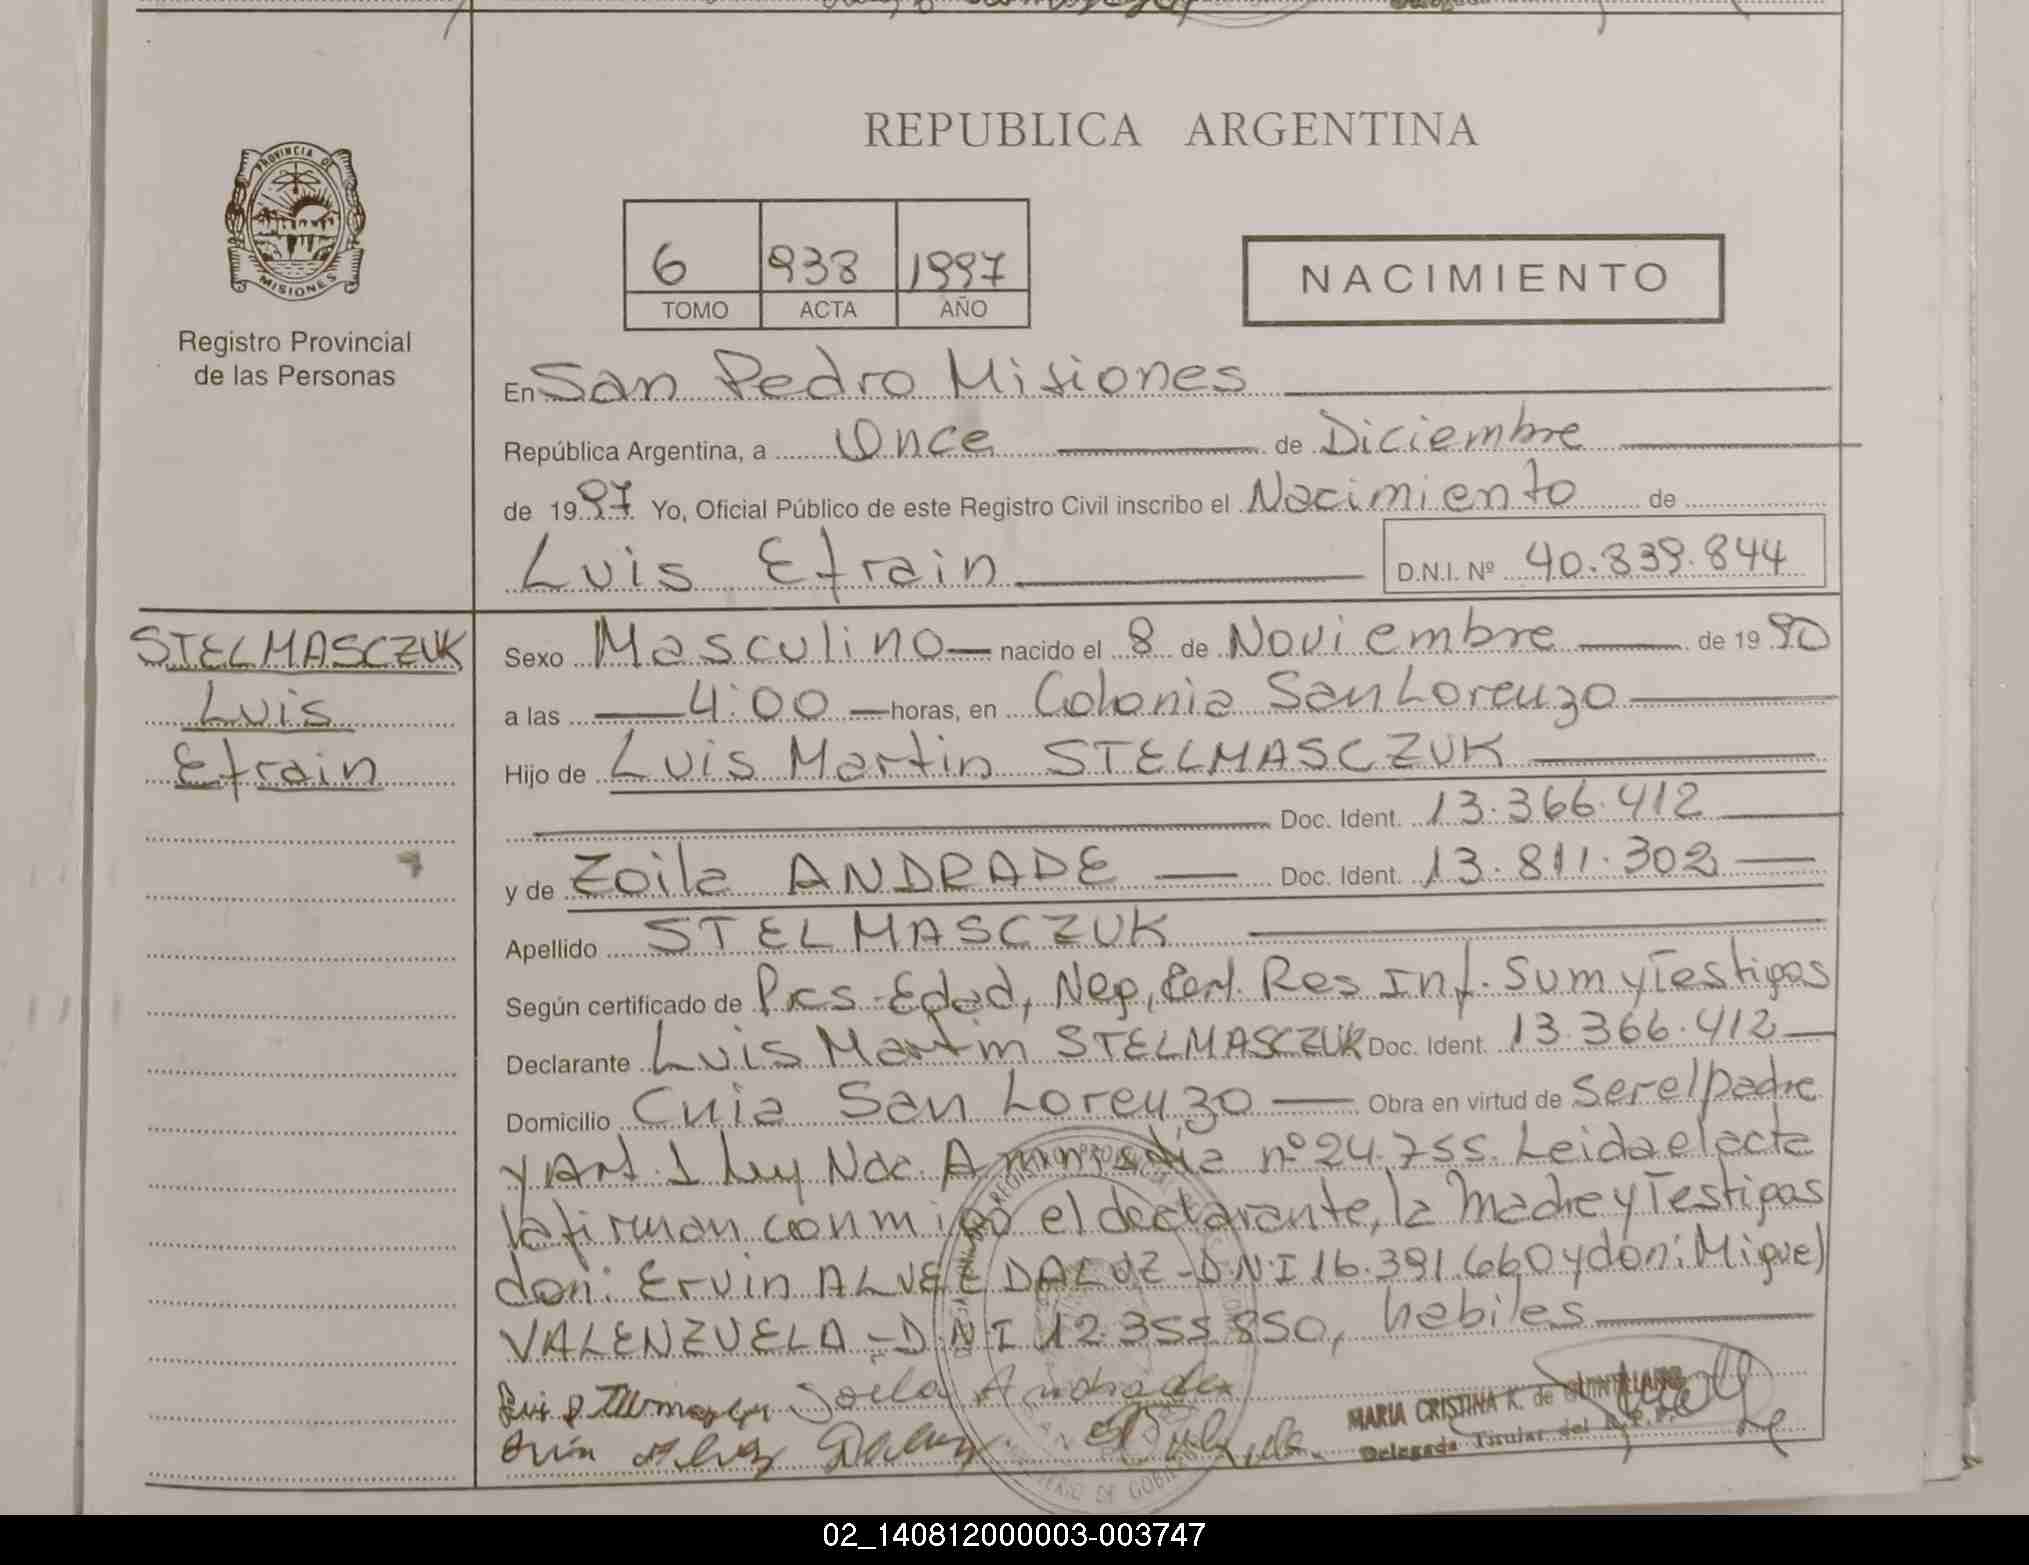 REPUBLICA ARGENTINA
PROVINCIA DE
MISIONES
Registro Provincial
de las Personas
6 938 1997
TOMO ACTA AÑO
NACIMIENTO
En San Pedro Misiones
República Argentina, a Once de Diciembre
de 1997 Yo, Oficial Público de este Registro Civil inscribo el Nacimiento de
Luis Efrain D.N.I. Nº 40.839.844
STELMASCZUK
Luis
Efrain
Sexo Masculino nacido el 8 de Noviembre de 1990
a las 4:00 horas, en Colonia San Lorenzo
Hijo de Luis Martin STELMASCZUK
Doc. Ident. 13.366.412
y de Zoila ANDRADE Doc. Ident. 13.811.302
Apellido STELMASCZUK
Según certificado de Pres. Edad, Neg, Cert. Res Inf. Sum y Testigos
Declarante Luis Martin STELMASCZUK Doc. Ident. 13.366.412
Domicilio Cnia San Lorenzo Obra en virtud de ser el padre
y Art. 1 Ley Nac. Amnistia nº 24.755. Leida el acta
la firman conmigo el declarante, la Madre y Testigos
don: Ervin ALVEZ DALUZ - DNI 16.391.660 y don: Miguel
VALENZUELA - DNI 12.355.850, habiles
Soila Andrade
MARIA CRISTINA K. de QUINTILIANO
Delegada Titular del R.P.P.
02_140812000003-003747